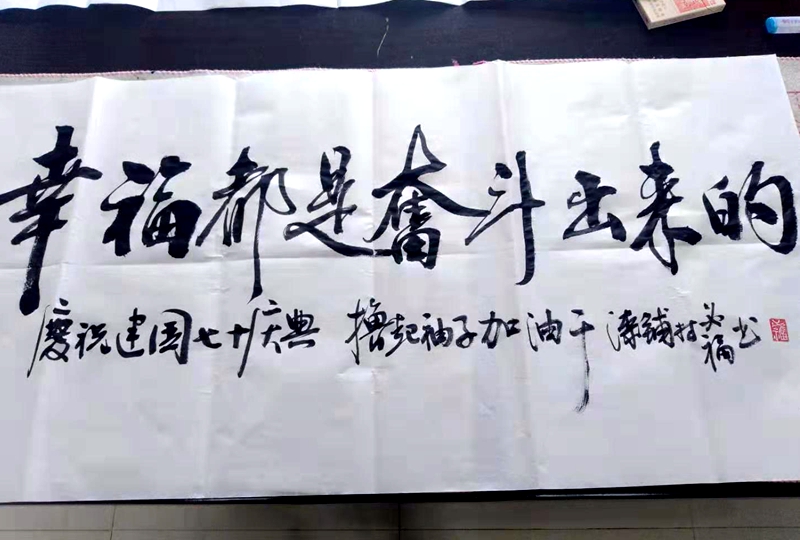 幸福都是奋斗出来的
慶祝建国七十庆典 撸起袖子加油干 溙鋪村 必福书